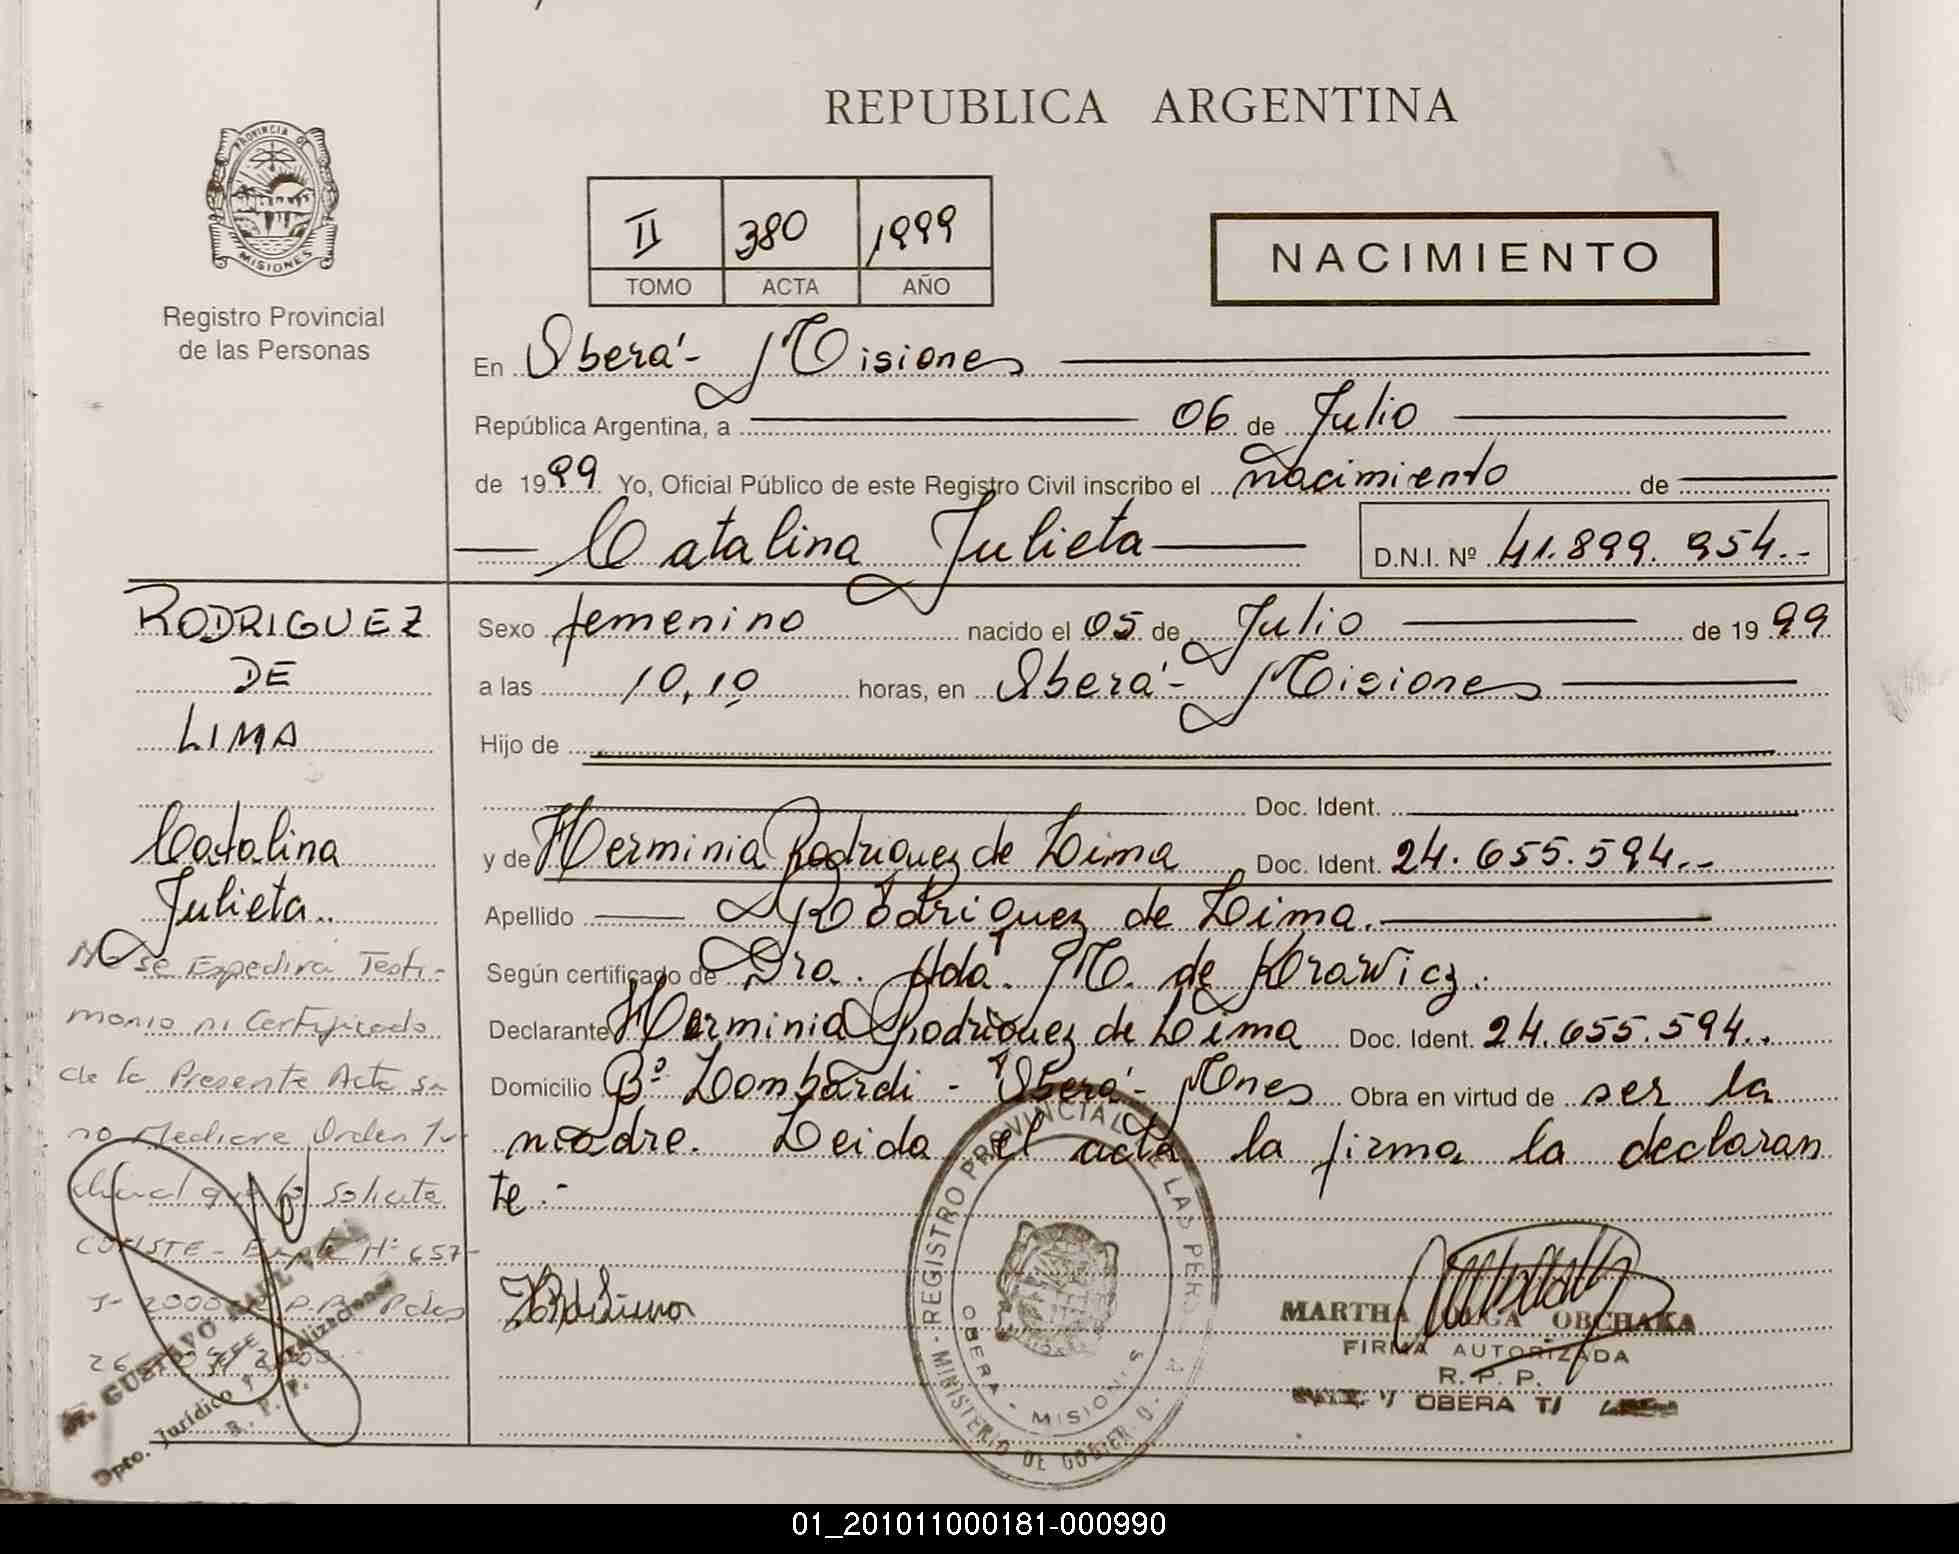 REPUBLICA ARGENTINA
PROVINCIA DE
MISIONES
Registro Provincial
de las Personas
II 380 1999
TOMO ACTA AÑO
NACIMIENTO
En Oberá - Misiones
República Argentina, a 06 de Julio
de 1999 Yo, Oficial Público de este Registro Civil inscribo el nacimiento de
Catalina Julieta D.N.I. Nº 41.899.954.-
RODRIGUEZ
DE
LIMA
Catalina
Julieta..
Sexo femenino nacido el 05 de Julio de 1999
a las 10,10 horas, en Oberá - Misiones
Hijo de
Doc. Ident.
y de Herminia Rodriguez de Lima Doc. Ident. 24.655.594.-
Apellido Rodriguez de Lima.
Según certificado de Dra. Ada. M. de Krawicz.
Declarante Herminia Rodriguez de Lima Doc. Ident. 24.655.594..
Domicilio Bº Lombardi - Oberá - Mnes Obra en virtud de ser la
madre. Leida el acta la firma la declaran
te.-
No se Expedira Testi-
monio ni Certificado
de la Presente Acta si
no Mediare Orden Ju-
dicial que lo Solicite
CONSTE - Expte Nº 657-
J- 2000 R.P.P. Pdas
26
GUSTAVO RAUL
Dpto. Jurídico y
R. P. P.
REGISTRO PROVINCIAL DE LAS PERS
OBERA - MISIONES
MINISTERIO DE GOBIERNO
MARTHA OLGA OBCHAKA
FIRMA AUTORIZADA
R. P. P.
OBERA
01_201011000181-000990